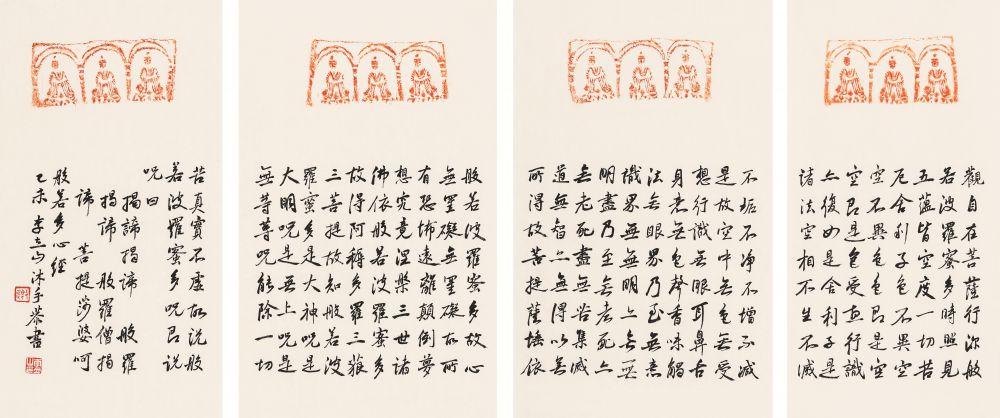 觀自在菩薩行深般
若波羅蜜多時照見
五蘊皆空度一切苦
厄舍利子色不異空
空不異色色即是空
空即是色受想行識
亦復如是舍利子是
諸法空相不生不滅
不垢不淨不增不減
是故空中無色無受
想行識無眼耳鼻舌
身意無色聲香味觸
法無眼界乃至無意
識界無無明亦無無
明盡乃至無老死亦
無老死盡無苦集滅
道無智亦無得以無
所得故菩提薩埵依
般若波羅蜜多故心
無罣礙無罣礙故無
有恐怖遠離顛倒夢
想究竟涅槃三世諸
佛依般若波羅蜜多
故得阿耨多羅三藐
三菩提故知般若波
羅蜜多是大神呪是
大明呪是無上呪是
無等等呪能除一切
苦真實不虛故說般
若波羅蜜多呪即說
呪曰
揭諦揭諦 般羅
揭諦 般羅僧揭
諦 菩提莎婆呵
般若多心經
乙未 李立山沐手恭書